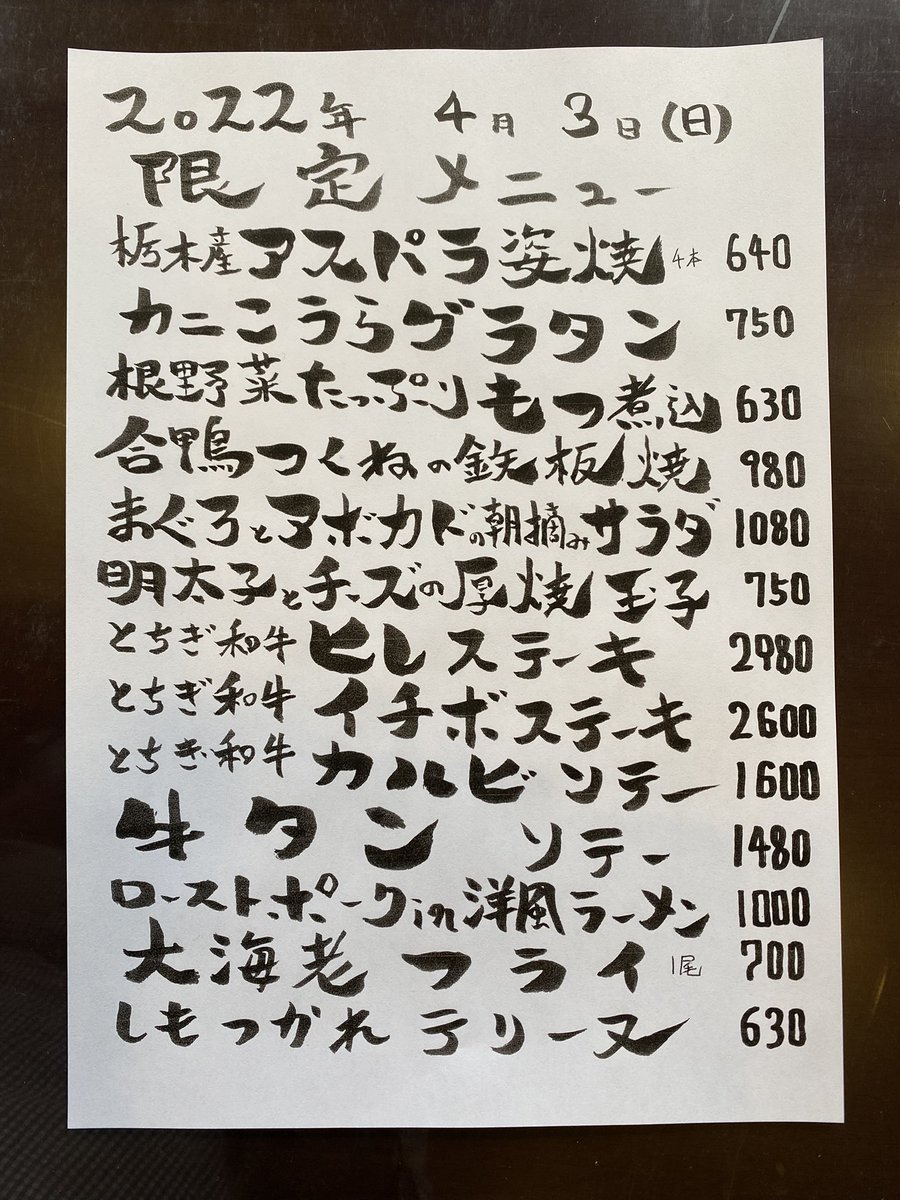 2022年 4月 3日(日)
限定メニュー
栃木産アスパラ姿焼 4本 640
カニこうらグラタン 750
根野菜たっぷりもつ煮込 630
合鴨つくねの鉄板焼 980
まぐろとアボカドの朝摘みサラダ 1080
明太子とチーズの厚焼玉子 750
とちぎ和牛 ヒレステーキ 2980
とちぎ和牛 イチボステーキ 2600
とちぎ和牛 カルビソテー 1600
牛タン ソテー 1480
ローストポークin洋風ラーメン 1000
大海老フライ 1尾 700
しもつかれテリーヌ 630